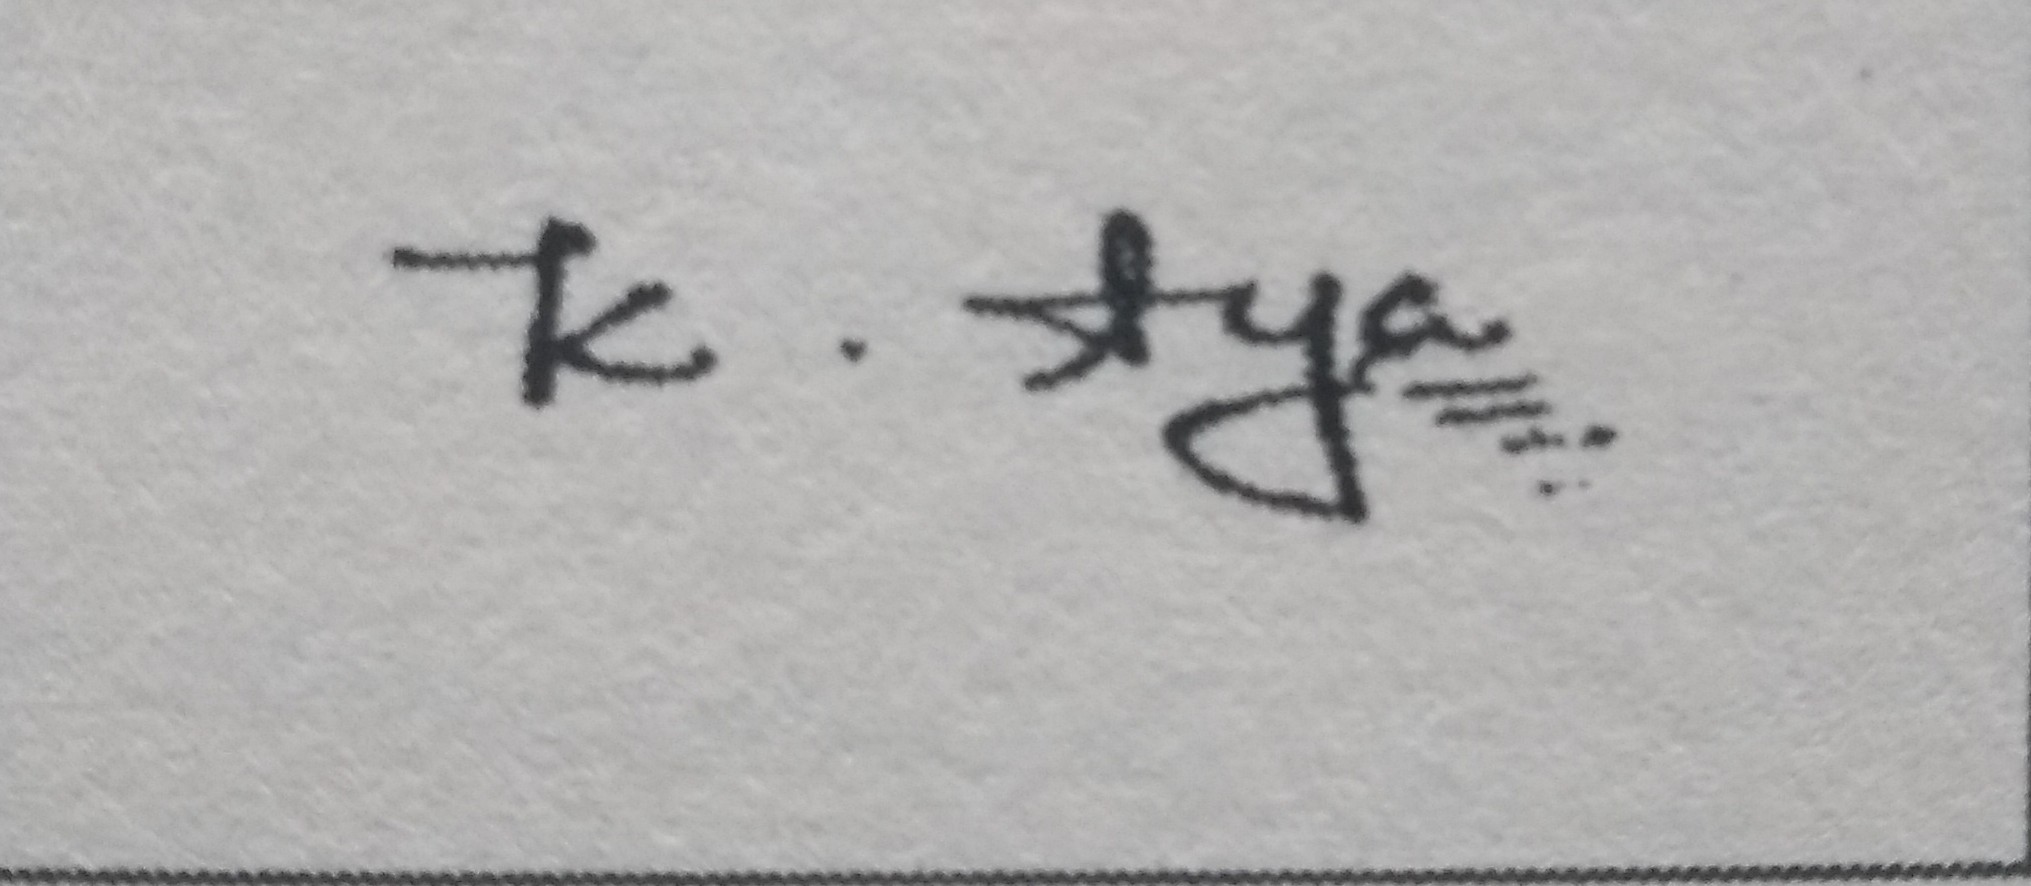 K. Arya